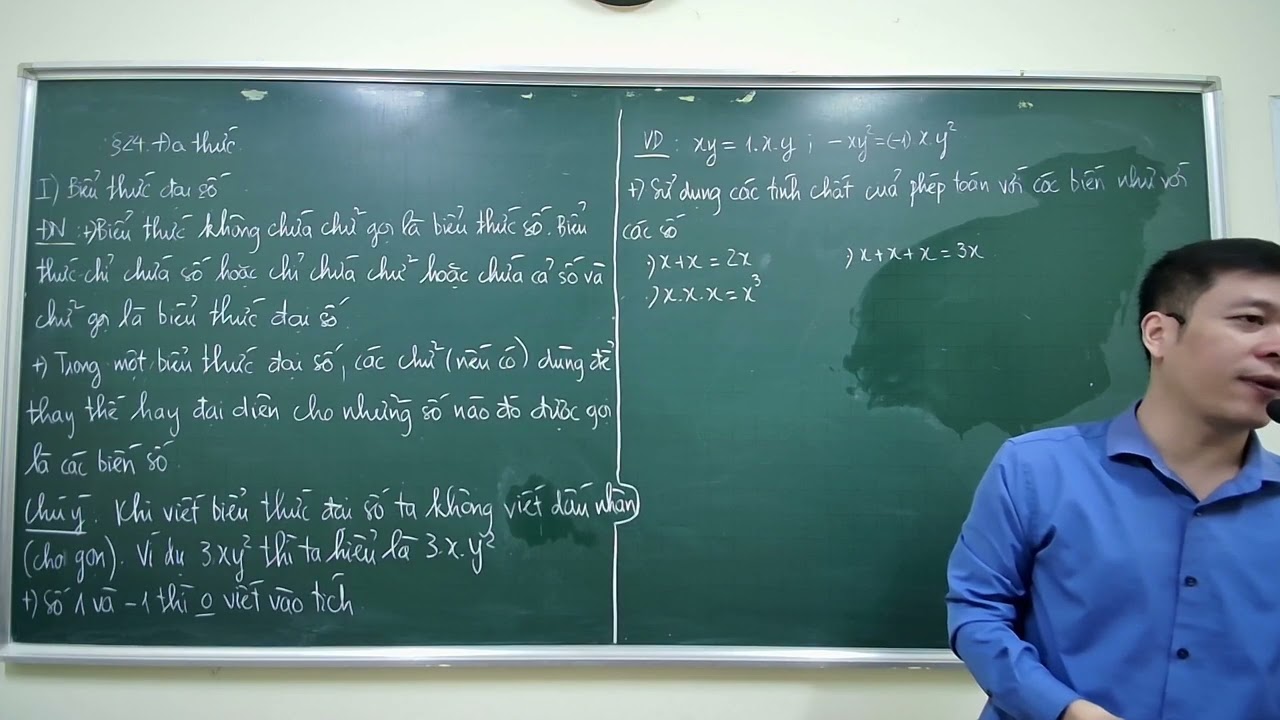 §24. Đa thức
I) Biểu thức đại số
ĐN: +) Biểu thức không chứa chữ gọi là biểu thức số. Biểu
thức chỉ chứa số hoặc chỉ chứa chữ hoặc chứa cả số và
chữ gọi là biểu thức đại số.
+) Trong một biểu thức đại số, các chữ (nếu có) dùng để
thay thế hay đại diện cho những số nào đó được gọi
là các biến số.
Chú ý. Khi viết biểu thức đại số ta không viết dấu nhân
(cho gọn). Ví dụ 3xy² thì ta hiểu là 3.x.y²
+) Số 1 và -1 thì o viết vào tích.
VD: xy = 1.x.y ; -xy² = (-1).x.y²
+) Sử dụng các tính chất của phép toán với các biến như với
các số
.) x+x = 2x .) x+x+x = 3x
.) x.x.x = x³